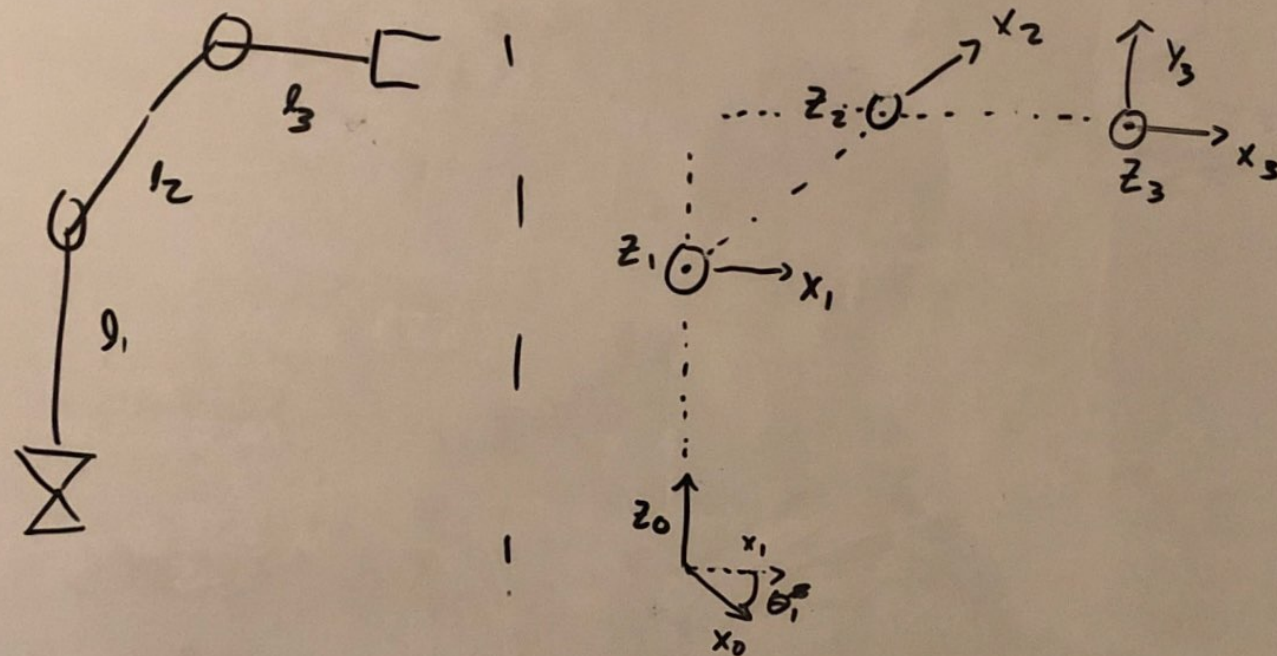 l₃
l₂
l₁
x₂
y₃
z₂
x₃
z₃
z₁
x₁
z₀
x₁
θ₁*
x₀